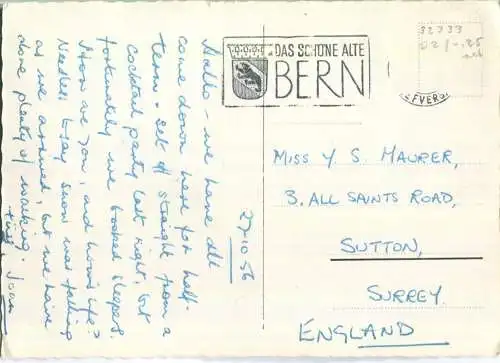 27-10-56
Hello - we have all
come down here for half-
term. Set off straight from a
cocktail party last night, but
fortunately we booked sleepers.
How are you, and how's life?
Needless to say snow was falling
as we arrived, but we have
done plenty of walking.
Joan
DAS SCHÖNE ALTE
BERN
EFVERS
32333
MISS Y S. MAURER,
3. ALL SAINTS ROAD,
SUTTON,
SURREY.
ENGLAND